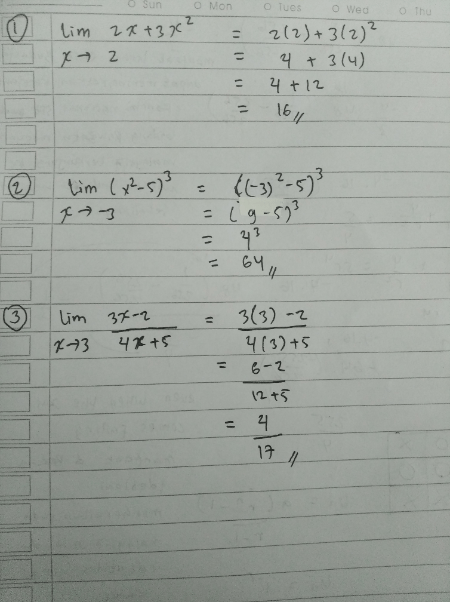 Sun Mon Tues Wed Thu
① lim 2x+3x² = 2(2)+3(2)²
x→2 = 4 + 3(4)
= 4+12
= 16 //
② lim (x²-5)³ = ((-3)²-5)³
x→-3 = (9-5)³
= 4³
= 64 //
③ lim 3x-2 = 3(3)-2
x→3 4x+5 4(3)+5
= 6-2
12+5
= 4
17 //